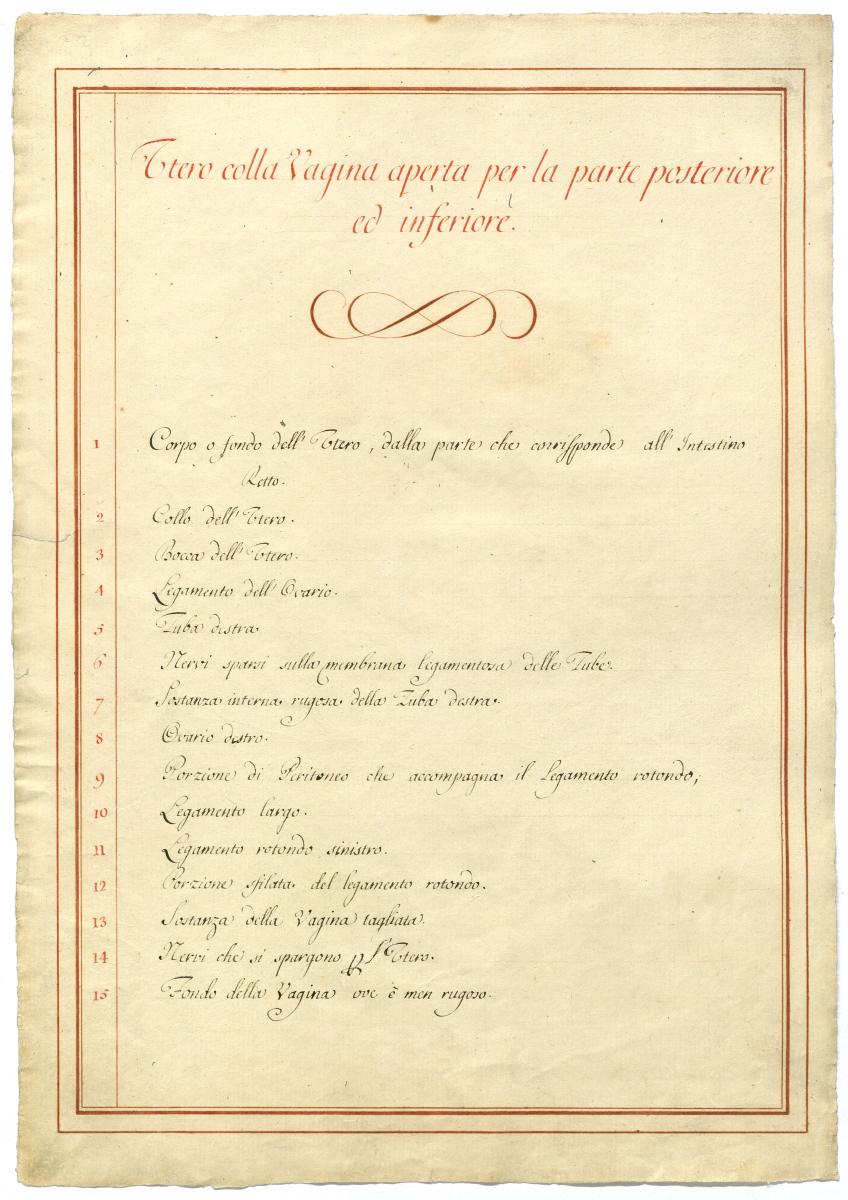 Utero colla Vagina aperta per la parte posteriore
ed inferiore.
1 Corpo o fondo dell' Utero, dalla parte che corrisponde all' Intestino
Retto.
2 Collo dell' Utero.
3 Bocca dell' Utero.
4 Legamento dell' Ovario.
5 Tuba destra
6 Nervi sparsi sulla membrana legamentosa delle Tube.
7 Sostanza interna rugosa della Tuba destra.
8 Ovario destro.
9 Porzione di Peritoneo che accompagna il legamento rotondo;
10 Legamento largo.
11 Legamento rotondo sinistro.
12 Porzione sfilata del legamento rotondo.
13 Sostanza della Vagina tagliata.
14 Nervi che si spargono p l'Utero.
15 Fondo della Vagina ove è men rugoso.